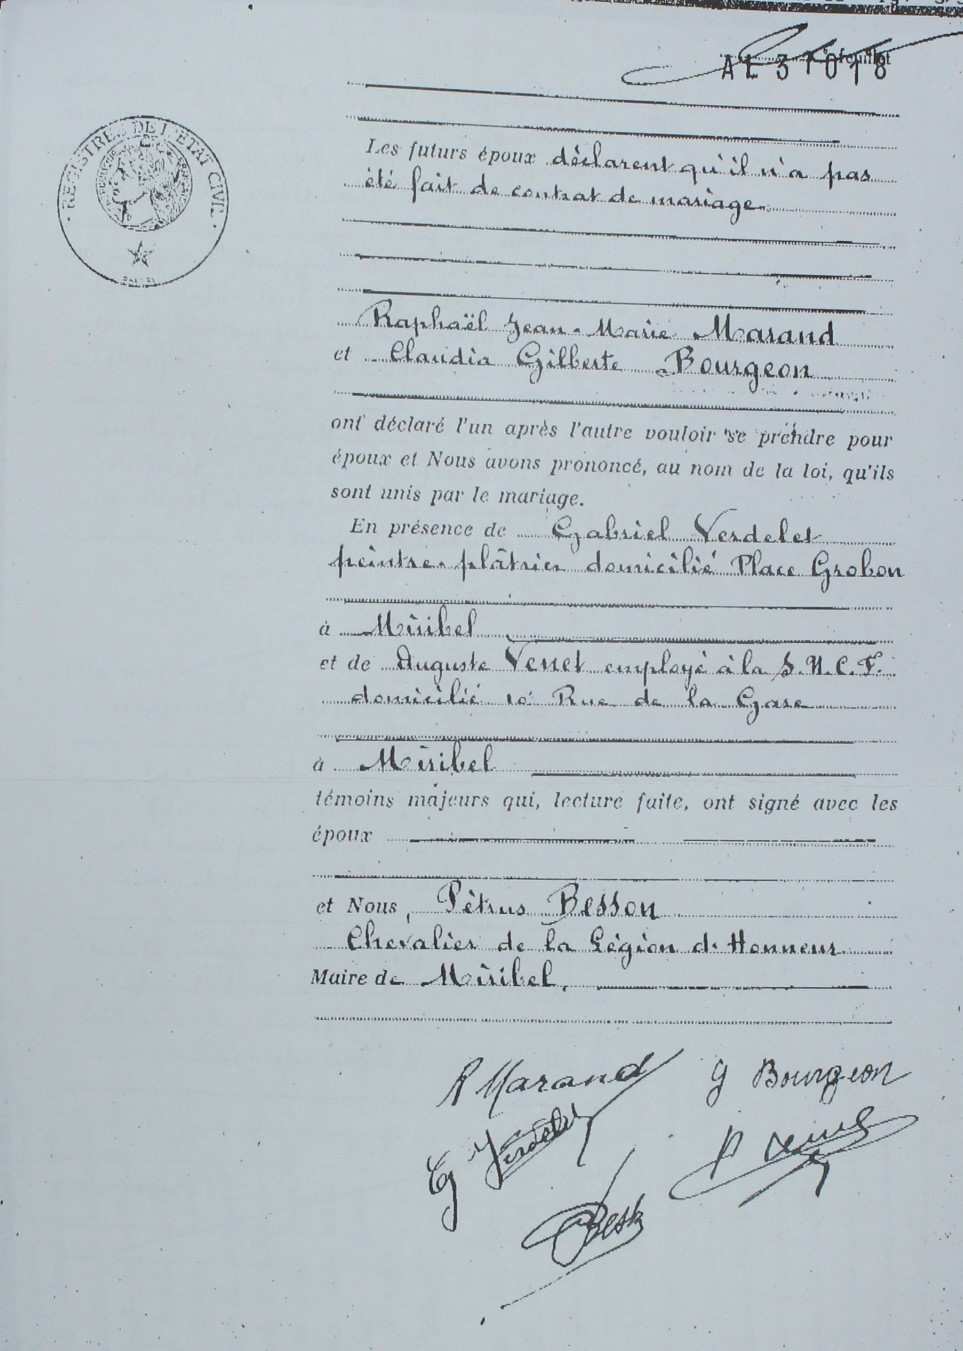 feuillet
AL 37018
REGISTRES DE L'ETAT CIVIL
Les futurs époux déclarent qu'il n'a pas
été fait de contrat de mariage.
Raphaël Jean-Marie Marand
et Claudia Gilberte Bourgeon
ont déclaré l'un après l'autre vouloir se prendre pour
époux et Nous avons prononcé, au nom de la loi, qu'ils
sont unis par le mariage.
En présence de Gabriel Verdelet
peintre-plâtrier domicilié Place Grobon
à Miribel
et de Auguste Venet employé à la S.N.C.F.
domicilié 10 Rue de la Gare
à Miribel
témoins majeurs qui, lecture faite, ont signé avec les
époux
et Nous, Pètrus Besson
Chevalier de la Légion d'Honneur
Maire de Miribel,
R Marand G Bourgeon
G Verdelet